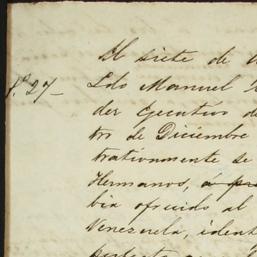 El siete de
f.º 27— Ldo Manuel
der Ejecutivo de
tro de Diciembre
trativamente se
Hermanos, á pr
bia ofrecido al
Venezuela, ident